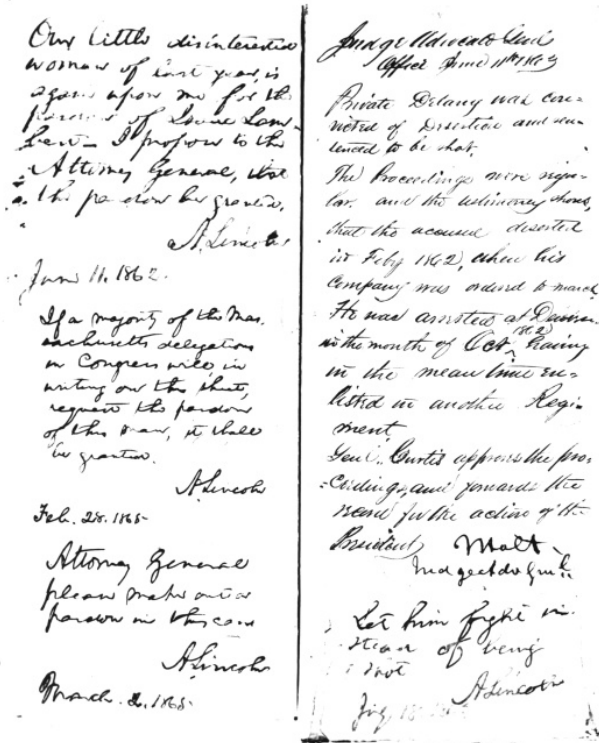 Our little disinterested
woman of last year, is
again upon me for the
pardon of Louis Lam-
bert — I propose to the
Attorney General, that
the pardon be granted.
A. Lincoln
June 11. 1862.
If a majority of the Mas-
sachusetts delegation
in Congress will, in
writing on this sheet,
request the pardon
of this man, it shall
be granted.
A. Lincoln
Feb. 28. 1865
Attorney General
please make out a
pardon in this case
A. Lincoln
March. 2. 1865.
Judge Advocate Genl
Office June 11th
Private Delany was con-
victed of Desertion and sen-
tenced to be shot.
The Proceedings were regu-
lar, and the testimony shows,
that the accused deserted
in Feby 1862, when his
Company was ordered to march.
He was arrested at
in the month of Oct. 1862, having
in the mean time en-
listed in another Regi-
ment
Genl. Curtis approves the pro-
ceedings, and forwards the
record for the action of the
President
Holt
Judge Adv Genl.
Let him fight in-
stead of being
shot
A. Lincoln
18.